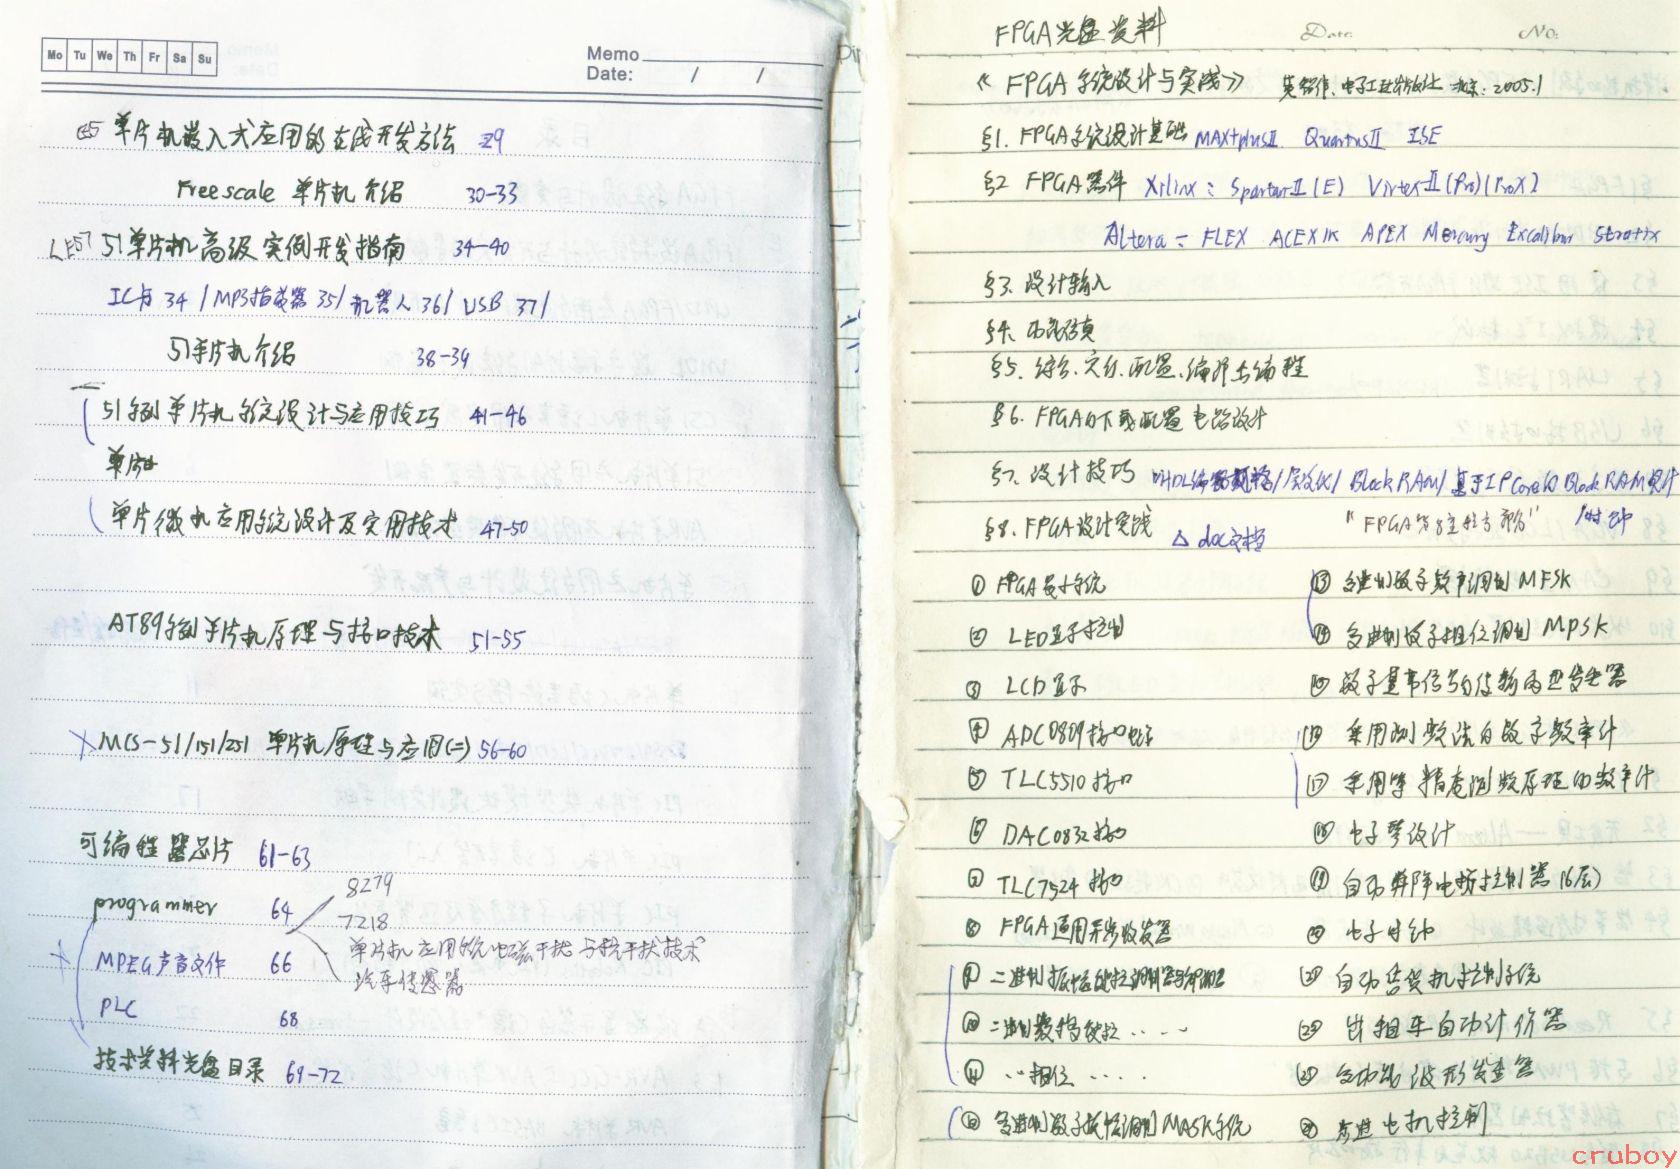 Mo Tu We Th Fr Sa Su
Memo
Date: / /
单片机嵌入式应用的在线开发方法 29
Freescale 单片机介绍 30-33
51单片机高级实例开发指南 34-40
IC卡 34 / MP3播放器 35/ 机器人 36/ USB 37/
51单片机介绍 38-39
51系列单片机系统设计与应用技巧 41-46
单片
单片微机应用系统设计及实用技术 47-50
AT89系列单片机原理与接口技术 51-55
MCS-51/151/251 单片机原理与应用(二) 56-60
可编程器芯片 61-63
programmer 64
8279
7218
单片机应用系统电磁干扰与抗干扰技术
汽车传感器
MPEG声音文件 66
PLC 68
技术资料光盘目录 69-72
FPGA光盘资料
Date: No:
《FPGA系统设计与实践》 电子工业出版社 北京. 2005.1
§1. FPGA系统设计基础 MAX+plusII QuartusII ISE
§2 FPGA器件 Xilinx: SpartanII(E) Virtex-II(Pro)(ProX)
Altera: FLEX ACEX1K APEX Mercury Excalibur Stratix
§3. 设计输入
§4. 仿真
§5. 综合、实现、配置、编程
§6. FPGA的下载配置电路设计
§7. 设计技巧 VHDL编码风格/层次化/ Block RAM/ 基于IPCore的Block RAM设计
/时钟
§8. FPGA设计实践 △ doc文档
① FPGA最小系统
② LED显示控制
③ LCD显示
④ ADC0809接口电路
⑤ TLC5510接口
⑥ DAC0832接口
⑦ TLC7524接口
⑧ FPGA通用异步收发器
⑨ 二进制振幅键控调制器与解调器
⑩ 二进制数字频移键控 ......
⑪ ..相位 ....
⑫ 多进制数字振幅调制MASK系统
⑬ 多进制数字频率调制MFSK
⑭ 多进制数字相位调制MPSK
⑮ 数字基带信号的传输码型发生器
⑯ 采用测频法的数字频率计
⑰ 采用等精度测频原理的频率计
⑱ 电子琴设计
⑲ 自动升降电梯控制器(6层)
⑳ 电子时钟
㉑ 自动售货机控制系统
㉒ 出租车自动计价器
㉓ 多功能波形发生器
㉔ 步进电机控制
cruboy